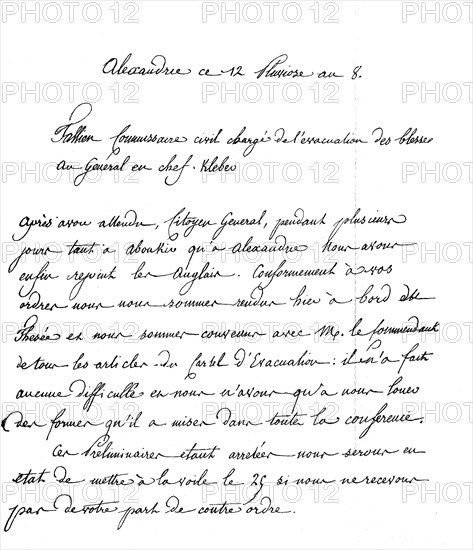 Alexandrie ce 12 Pluviose an 8.
Tallien Commissaire civil chargé de l'évacuation des blessé
au Général en chef Kleber
après avoir attendu, Citoyen General, pendant plusieurs
jours tant à aboukir qu'à alexandrie nous avons
enfin rejoint les Anglais. Conformement à vos
ordres nous nous sommes rendus hier à bord du
Thesée et nous sommes convenus avec Mr. le Commendant
de tous les articles du Cartel d'Evacuation : il n'a fait
aucune difficulté et nous n'avons qu'à nous louer
des formes qu'il a mises dans toute la conference.
Ces Preliminaires étant arretées nous serons en
etat de mettre à la voile le 25 si nous ne recevons
pas de votre part de contre ordre.
PHOTO12